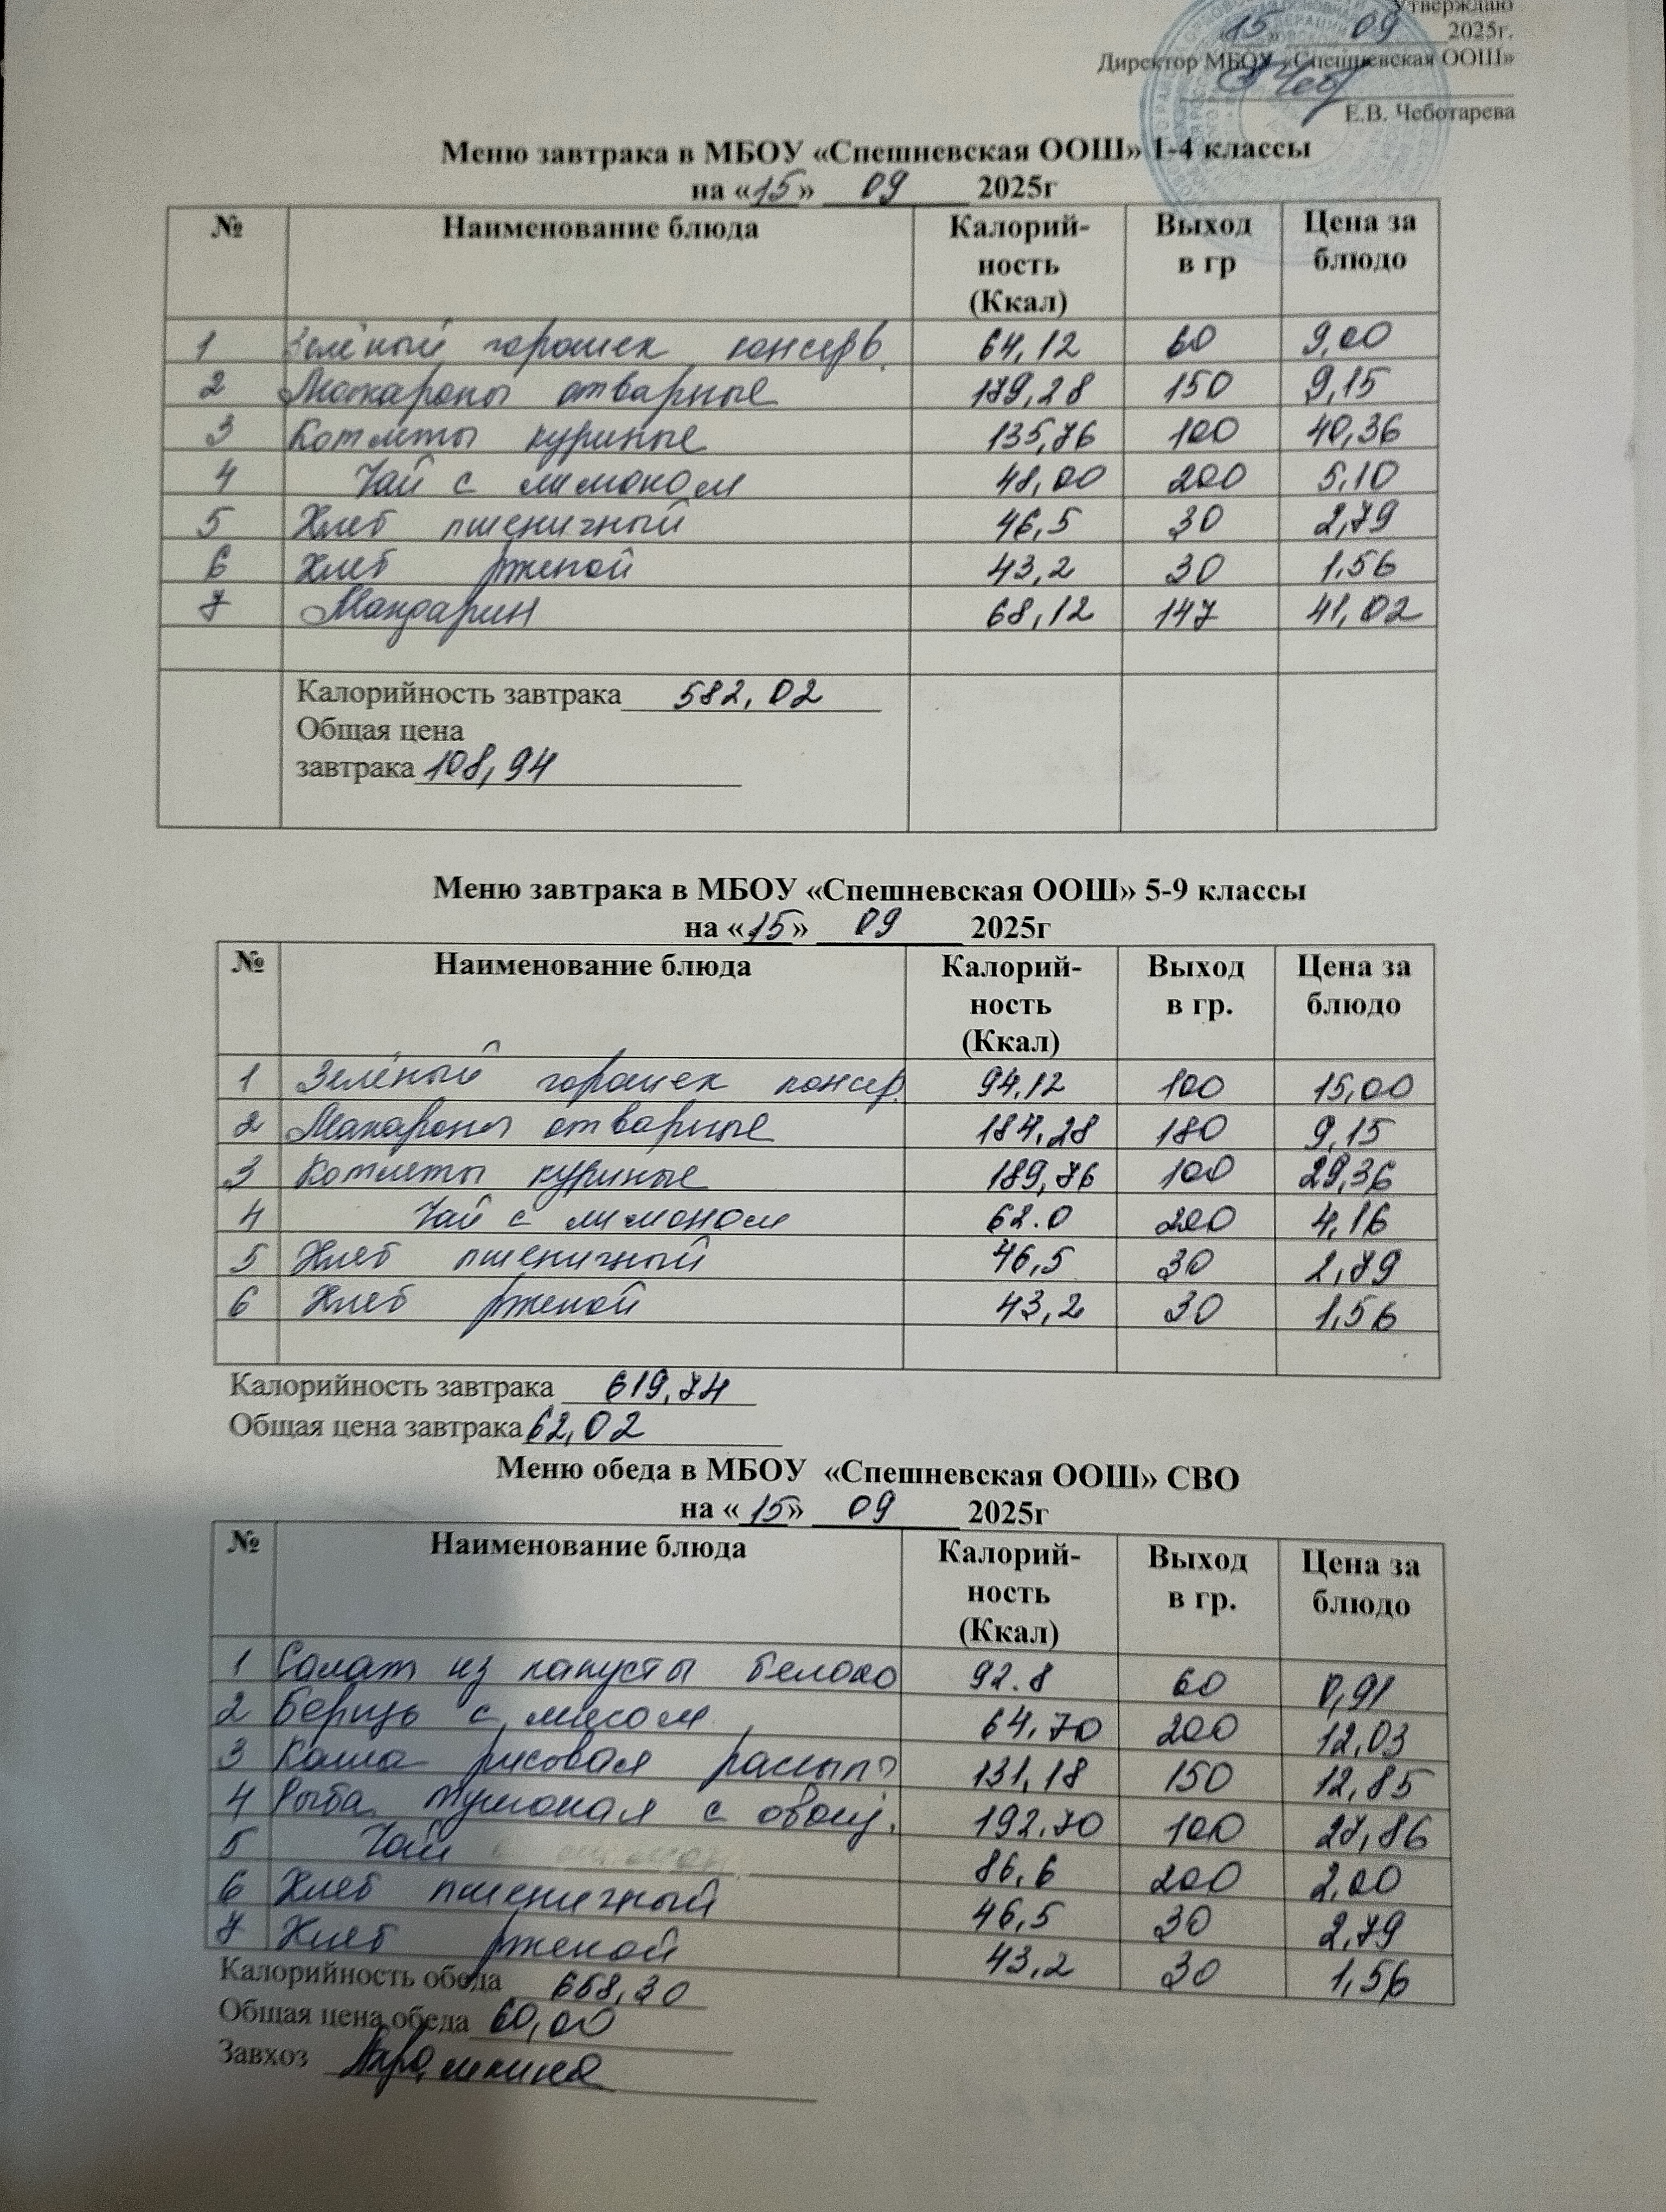 Утверждаю
«15» 09 2025г.
Директор МБОУ «Спешневская ООШ»
Е.В. Чеботарева
Меню завтрака в МБОУ «Спешневская ООШ» 1-4 классы
на «15» 09 2025г
№ Наименование блюда Калорий-ность (Ккал) Выход в гр Цена за блюдо
1 Зелёный горошек консерв. 64,12 60 9,00
2 Макароны отварные 179,28 150 9,15
3 Котлеты куриные 135,76 100 40,36
4 Чай с лимоном 48,00 200 5,10
5 Хлеб пшеничный 46,5 30 2,79
6 Хлеб ржепой 43,2 30 1,56
7 Мандарин 68,12 147 41,02
Калорийность завтрака 582,02
Общая цена
завтрака 108,94
Меню завтрака в МБОУ «Спешневская ООШ» 5-9 классы
на «15» 09 2025г
№ Наименование блюда Калорий-ность (Ккал) Выход в гр. Цена за блюдо
1 Зелёный горошек консер. 94,12 100 15,00
2 Макароны отварные 184,28 180 9,15
3 Котлеты куриные 189,76 100 29,36
4 Чай с лимоном 62.0 200 4,16
5 Хлеб пшеничный 46,5 30 2,79
6 Хлеб ржепой 43,2 30 1,56
Калорийность завтрака 619,74
Общая цена завтрака 62,02
Меню обеда в МБОУ «Спешневская ООШ» СВО
на «15» 09 2025г
№ Наименование блюда Калорий-ность (Ккал) Выход в гр. Цена за блюдо
1 Салат из капусты белоко 92.8 60 0,91
2 Борщ с мясом 64,70 200 12,03
3 Каша рисовая рассып 131,18 150 12,85
4 Рыба тушоная с овощ. 192.70 100 27,86
5 Чай 86,6 200 2,00
6 Хлеб пшеничный 46,5 30 2,79
7 Хлеб ржепой 43,2 30 1,56
Калорийность обеда 658,30
Общая цена обеда 60,00
Завхоз